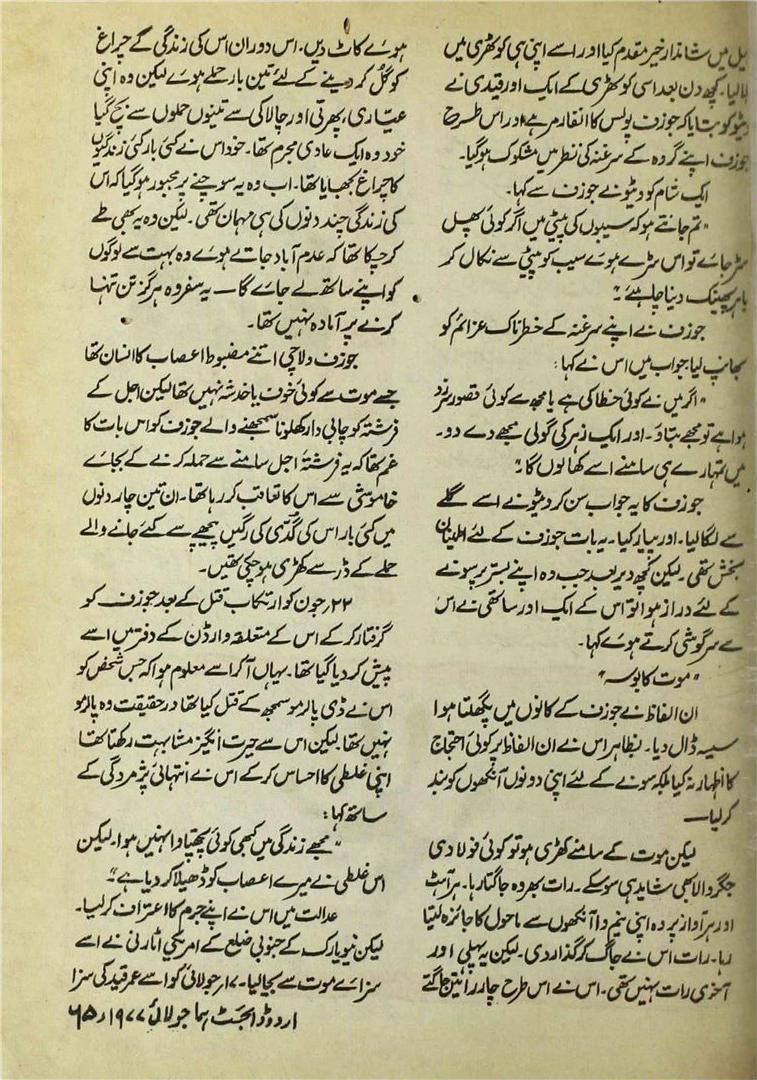 جیل میں شاندار خیر مقدم کیا اور اسے اپنی ہی کوٹھری میں
بلا لیا۔ کچھ دن بعد اسی کوٹھری کے ایک اور قیدی نے
ویٹو کو بتایا کہ جوزف پولس کا انفارمر ہے اور اس طرح
جوزف اپنے گروہ کے سرغنہ کی نظر میں مشکوک ہو گیا۔
ایک شام کو ویٹو نے جوزف سے کہا۔
"تم جانتے ہو کہ سیبوں کی پیٹی میں اگر کوئی پھل
سڑ جائے تو اس سڑے ہوئے سیب کو پیٹی سے نکال کر
باہر پھینک دینا چاہیئے۔"
جوزف نے اپنے سرغنہ کے خطرناک عزائم کو
بھانپ لیا جواب میں اس نے کہا:
"اگر میں نے کوئی خطا کی ہے یا مجھ سے کوئی قصور سرزد
ہوا ہے تو مجھے بتاؤ۔ اور ایک زہر کی گولی مجھے دے دو۔
میں تمہارے ہی سامنے اسے کھا لوں گا۔"
جوزف کا یہ جواب سن کر ویٹو نے اسے گلے
سے لگا لیا۔ اور پیار کیا۔ یہ بات جوزف کے لئے اطمینان
بخش تھی۔ لیکن کچھ دیر بعد جب وہ اپنے بستر پر سونے
کے لئے دراز ہوا تو اس کے ایک اور ساتھی نے اس
سے سرگوشی کرتے ہوئے کہا۔
"موت کا بوسہ"
ان الفاظ نے جوزف کے کانوں میں پگھلتا ہوا
سیسہ ڈال دیا۔ بظاہر اس نے ان الفاظ پر کوئی احتجاج
کا اظہار نہ کیا بلکہ سونے کے لئے اپنی دونوں آنکھوں کو بند
کر لیا—
لیکن موت کے سامنے کھڑی ہو تو کوئی فولادی
جگر والا بھی شاید ہی سو سکے۔ رات بھر وہ جاگتا رہا۔ ہر آہٹ
اور ہر آواز پر وہ اپنی نیم وا آنکھوں سے ماحول کا جائزہ لیتا
رہا۔ رات اس نے جاگ کر گذار دی۔ لیکن یہ پہلی اور
آخری رات نہیں تھی۔ اس نے اس طرح چار راتیں جاگتے
ہوئے کاٹ دیں۔ اس دوران اس کی زندگی کے چراغ
کو گل کر دینے کے لئے تین بار حملے ہوئے لیکن وہ اپنی
عیّاری، پھرتی اور چالاکی سے تینوں حملوں سے بچ گیا
خود وہ ایک عادی مجرم تھا۔ خود اس نے کئی بار کئی زندگیوں
کا چراغ بجھایا تھا۔ اب وہ یہ سوچنے پر مجبور ہو گیا کہ اس
کی زندگی چند دنوں کی ہی مہمان تھی۔ لیکن وہ یہ بھی طے
کر چکا تھا کہ عدم آباد جاتے ہوئے وہ بہت سے لوگوں
کو اپنے ساتھ لے جائے گا — یہ سفر وہ ہرگز تن تنہا
کرنے پر آمادہ نہیں تھا۔
جوزف ولاچی اتنے مضبوط اعصاب کا انسان تھا
جسے موت سے کوئی خوف یا خدشہ نہیں تھا لیکن اجل کے
فرشتہ کو چابی دار کھلونا سمجھنے والے جوزف کو اس بات کا
غم تھا کہ یہ فرشتۂ اجل سامنے سے حملہ کرنے کے بجائے
خاموشی سے اس کا تعاقب کر رہا تھا۔ ان تین چار دنوں
میں کئی بار اس کی گدّی کی رگیں پیچھے سے کئے جانے والے
حملے کے ڈر سے کھڑی ہو چکی تھیں۔
۲۲؍جون کو ارتکاب قتل کے بعد جوزف کو
گرفتار کر کے اس کے متعلقہ وارڈن کے دفتر میں اسے
پیش کر دیا گیا تھا۔ یہاں آ کر اسے معلوم ہوا کہ جس شخص کو
اس نے ڈی پالرمو سمجھ کے قتل کیا تھا درحقیقت وہ پالرمو
نہیں تھا۔ لیکن اس سے حیرت انگیز مشابہت رکھتا تھا
اپنی غلطی کا احساس کر کے اس نے انتہائی پژمردگی کے
ساتھ کہا:
"مجھے زندگی میں کبھی کوئی پچھتاوا نہیں ہوا۔ لیکن
اس غلطی نے میرے اعصاب کو ڈھیلا کر دیا ہے۔"
عدالت میں اس نے اپنے جرم کا اعتراف کر لیا۔
لیکن نیویارک کے جنوبی ضلع کے امریکی اٹارنی نے اسے
سزائے موت سے بچا لیا۔ ۱۷؍جولائی کو اسے عمر قید کی سزا
اردو ڈائجسٹ ہما جولائی ۱۹۷۷ء ۶۵